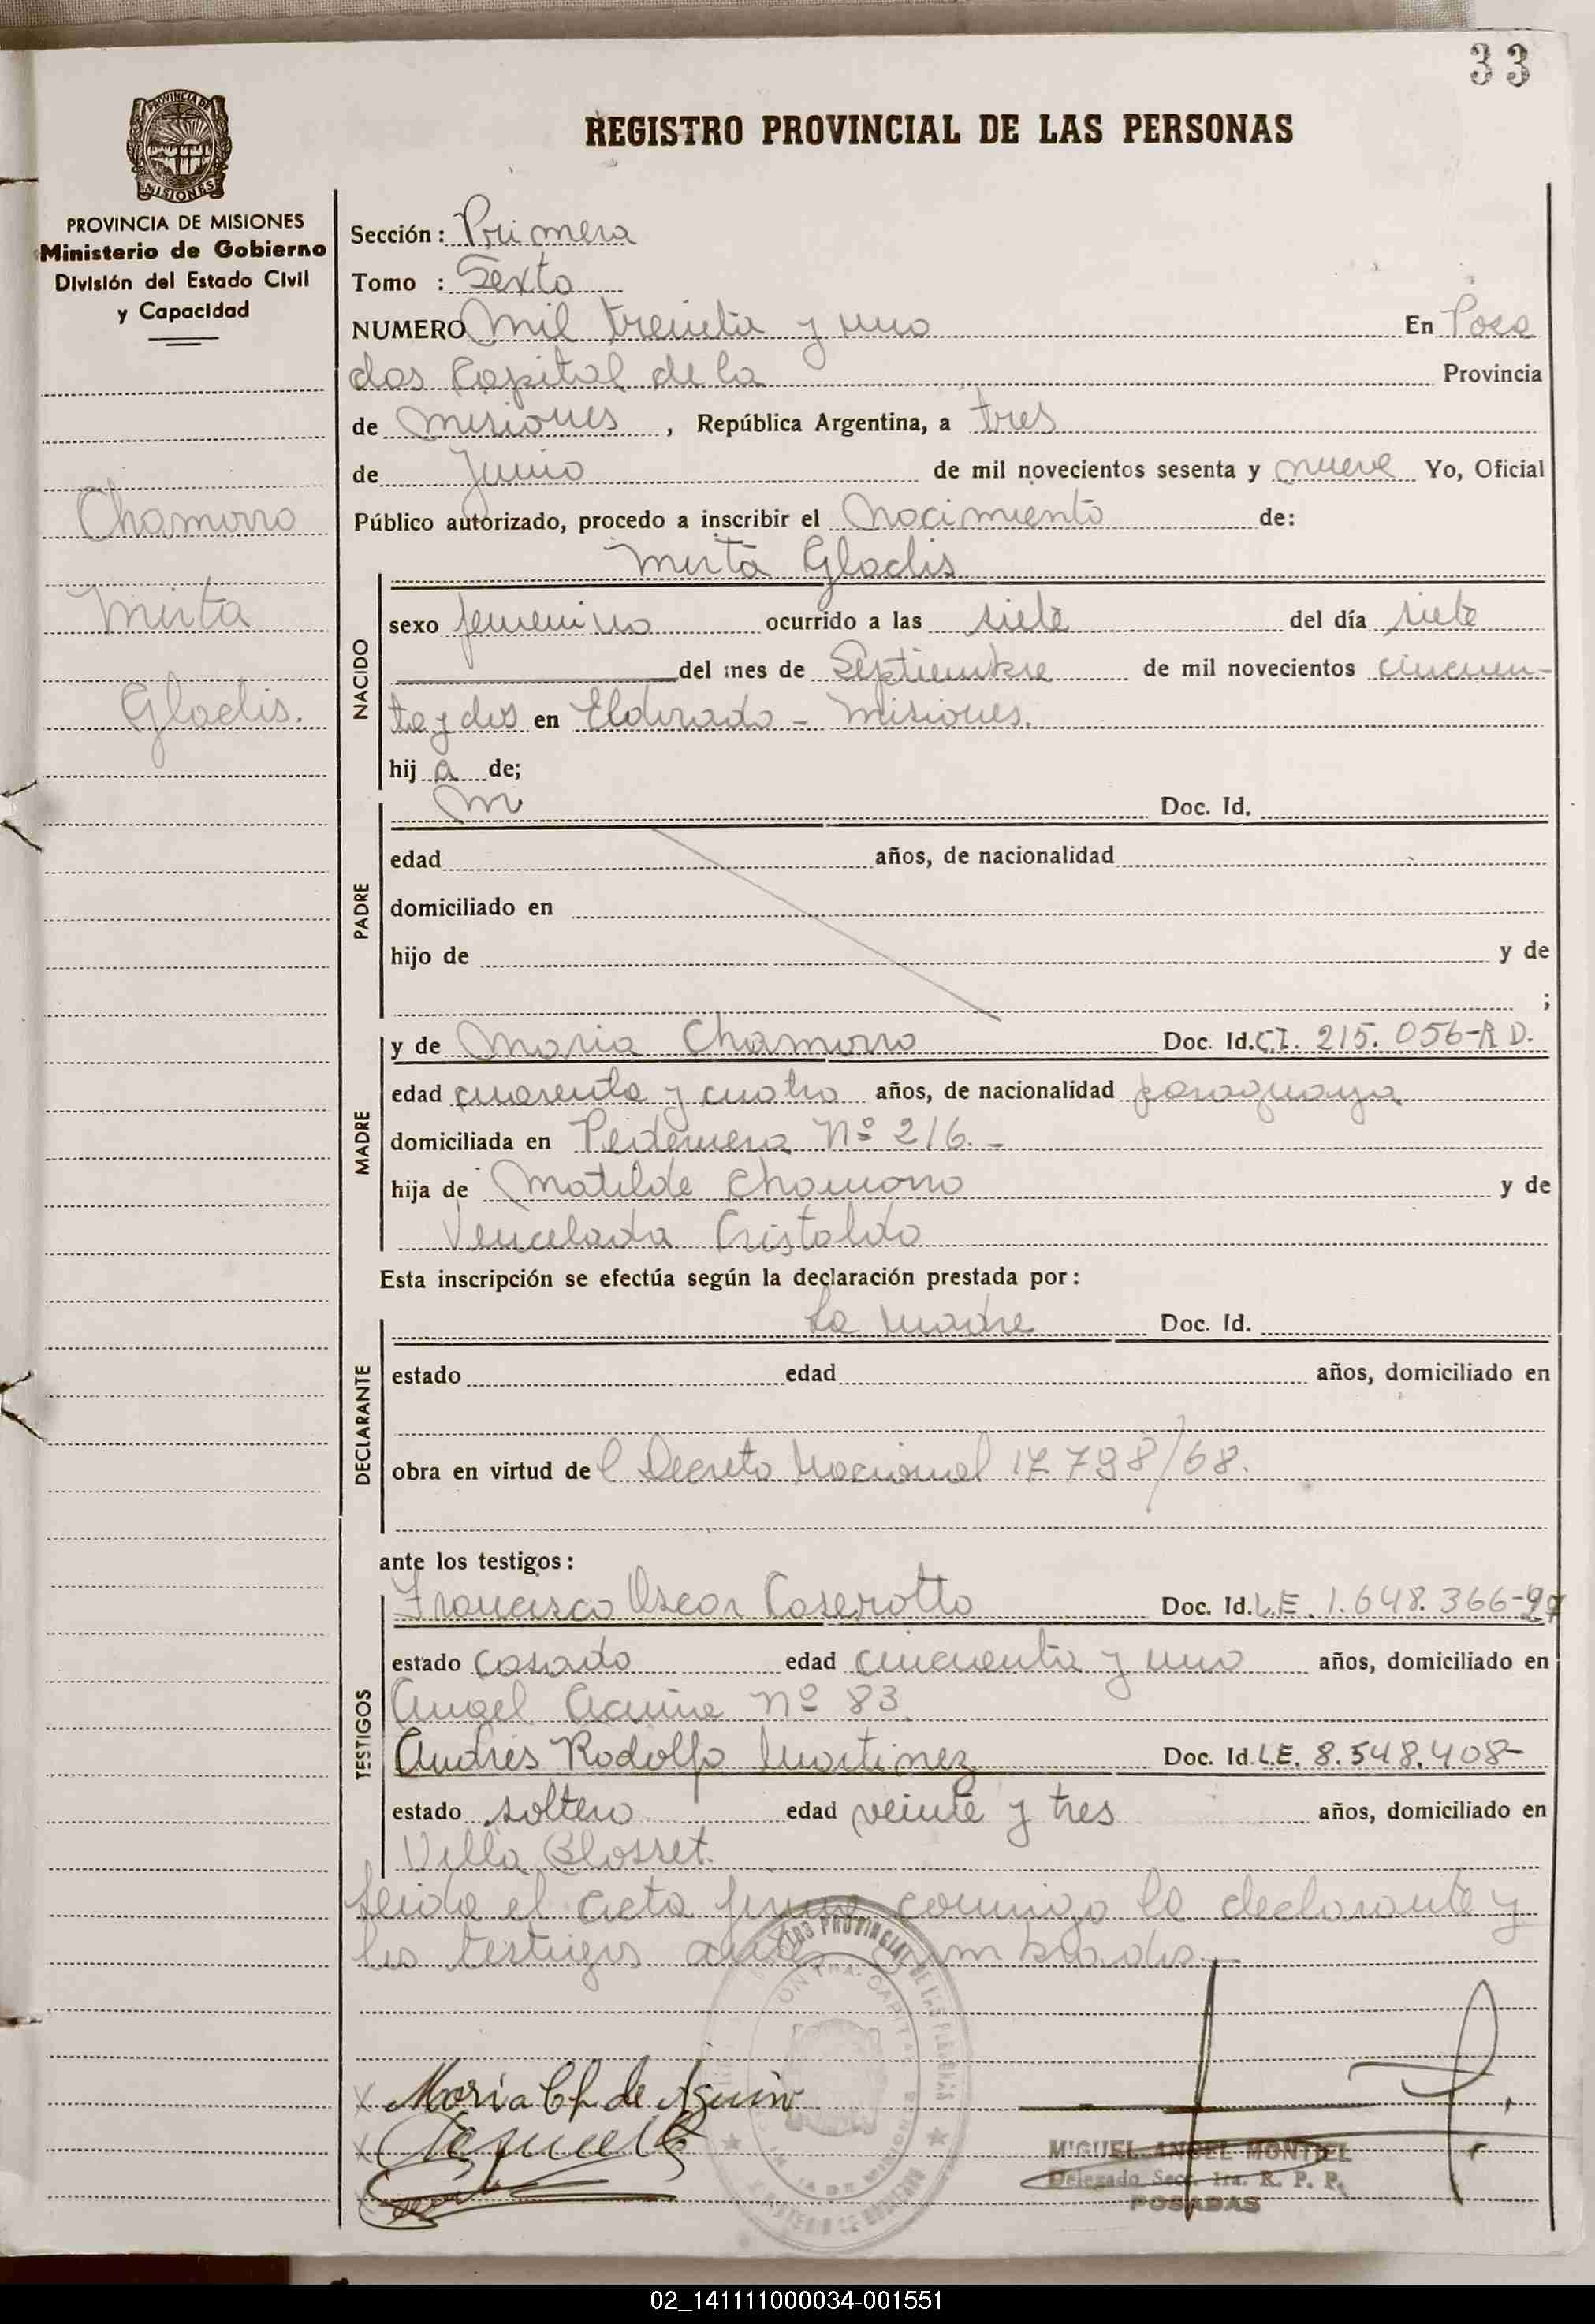 33
PROVINCIA DE MISIONES
REGISTRO PROVINCIAL DE LAS PERSONAS
PROVINCIA DE MISIONES
Ministerio de Gobierno
División del Estado Civil
y Capacidad
Chamorro
Mirta
Gladis.
Sección: Primera
Tomo : Sexto
NUMERO Mil treinta y uno En Posa
das Capital de la Provincia
de Misiones, República Argentina, a tres
de Junio de mil novecientos sesenta y nueve Yo, Oficial
Público autorizado, procedo a inscribir el Nacimiento de:
Mirta Gladis
NACIDO
sexo femenino ocurrido a las siete del día siete
del mes de Septiembre de mil novecientos cincuen-
ta y dos en Eldorado - Misiones.
hij a de;
PADRE
Doc. Id.
edad años, de nacionalidad
domiciliado en
hijo de y de
;
MADRE
y de Maria Chamorro Doc. Id. C.I. 215.056-R D.
edad cuarenta y cuatro años, de nacionalidad paraguaya
domiciliada en Pedernera Nº 216.-
hija de Matilde Chamorro y de
Vencelada Cristaldo
Esta inscripción se efectúa según la declaración prestada por:
DECLARANTE
La madre Doc. Id.
estado edad años, domiciliado en
obra en virtud de l Decreto Nacional 17.798/68.
ante los testigos:
TESTIGOS
Francisco Oscar Caserotto Doc. Id. L.E. 1.648.366-
estado casado edad cincuenta y uno años, domiciliado en
Angel Acuña Nº 83.
Andres Rodolfo Martinez Doc. Id. L.E. 8.548.408-
estado soltero edad veinte y tres años, domiciliado en
Villa Blosset.
Leida el acta firma conmigo la declarante y
los testigos antes nombrados.-
Maria Ch de
MIGUEL ANGEL MONTIEL
Delegado Secc. 1ra. R. P. P.
POSADAS
02_141111000034-001551